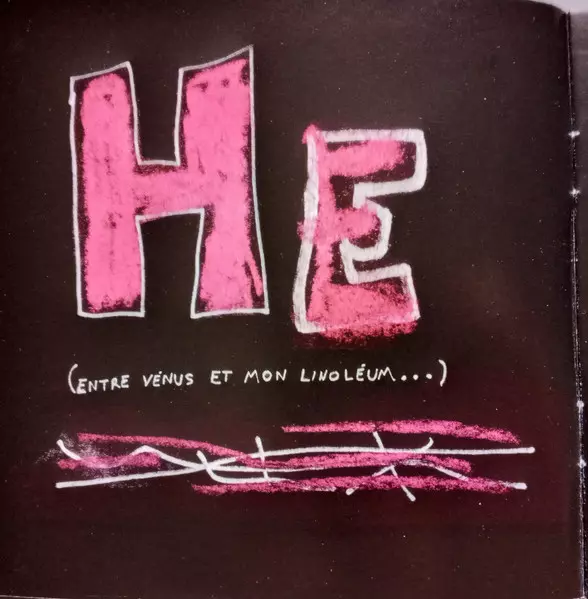 HE
(ENTRE VÉNUS ET MON LINOLÉUM...)